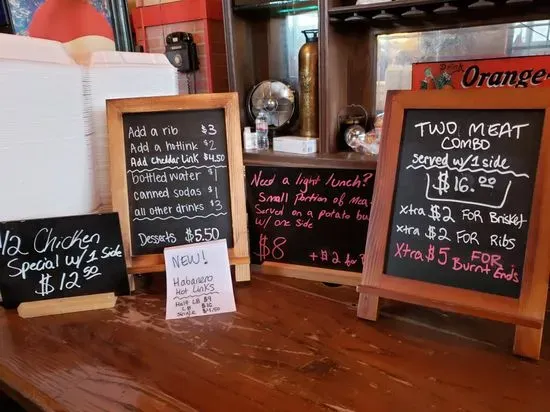 1/2 Chicken
Special w/ 1 side
$12.50
Add a rib $3
Add a hotlink $2
Add cheddar Link $4.50
bottled water $1
canned sodas $1
all other drinks $3
Desserts $5.50
NEW!
Habanero
Hot Links
Half LB $9
LB
Single $4.50
Need a light lunch?
Small portion of Meat
Served on a potato bu
w/ one side
$8
+ $2 for
Drink Orange-
TWO MEAT
COMBO
Served w/1 side
$16.00
xtra $2 FOR Brisket
xtra $2 FOR Ribs
Xtra $5 FOR
Burnt Ends